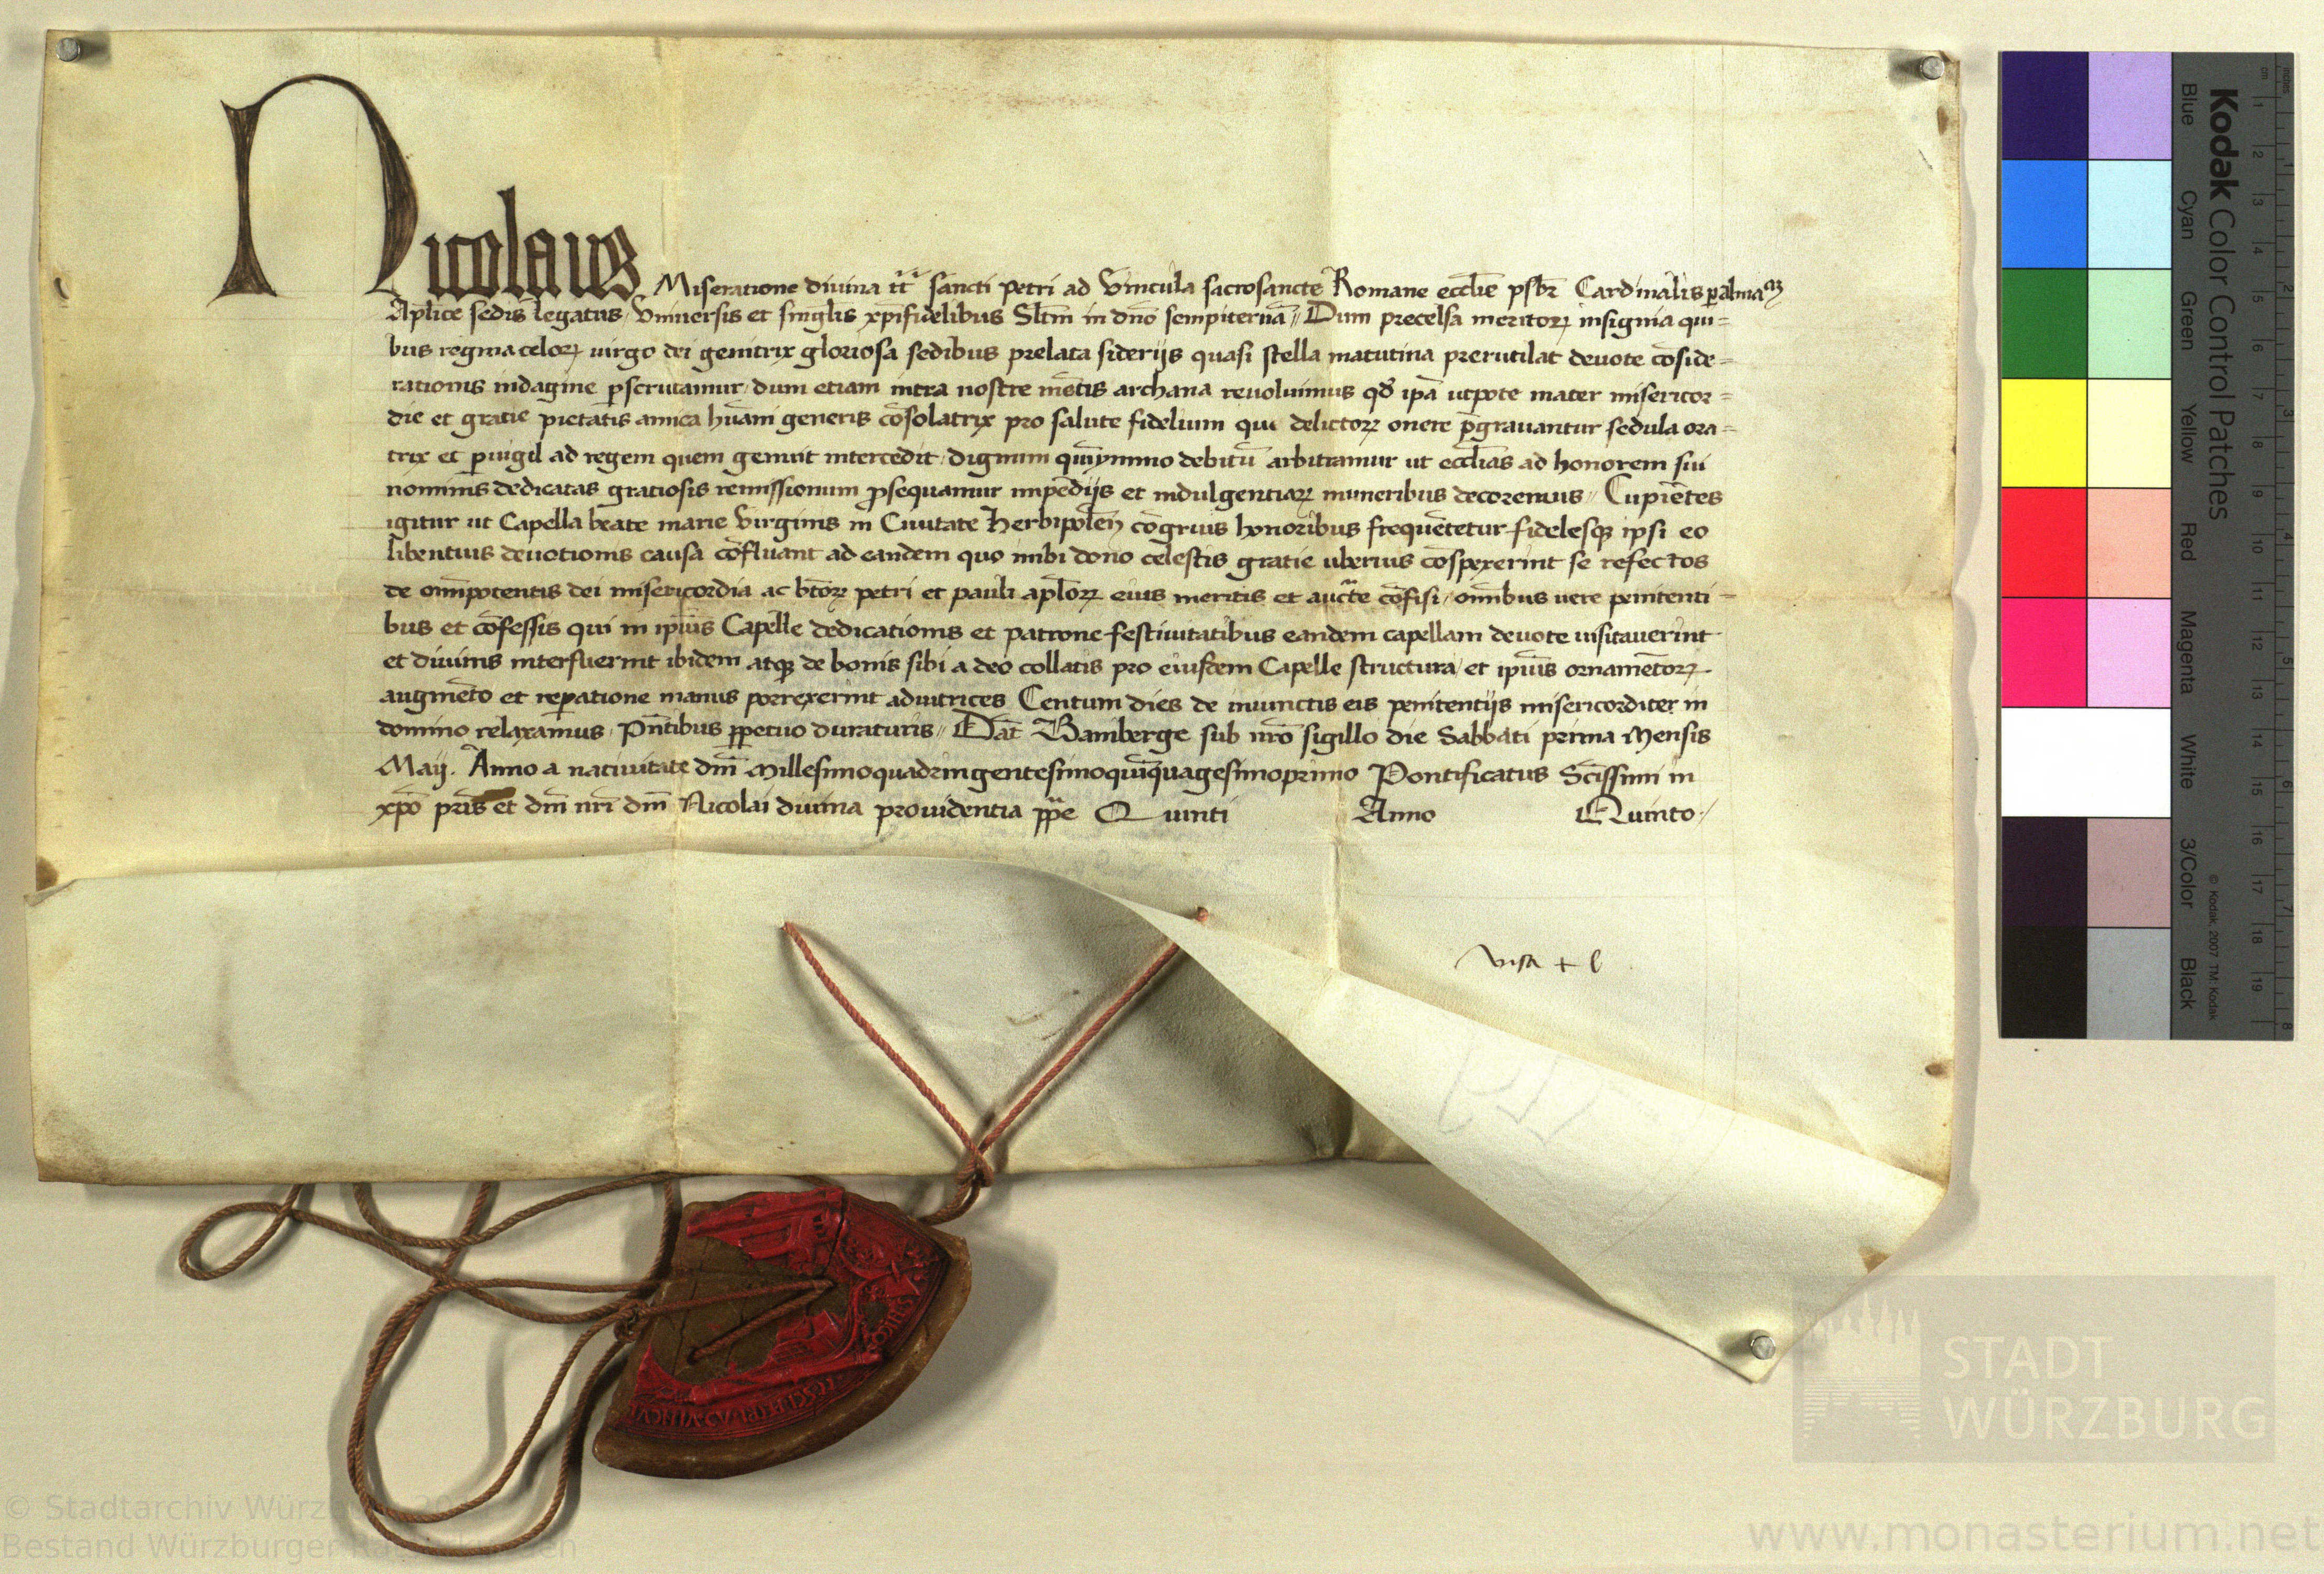 Nicolaus Miseratione diuina tt̄ sancti Petri ad Vincula sacrosancte Romane eccl̄ie psbr̄ Cardinalis p almaniā
Apl̄ice sedis legatus Vniuersis et singl̄is xp̄ifidelibus Sl̄tm̄ in dn̄o sempiternā // Dum precelsa meritoꝝ insignia qui=
bus regina celoꝝ uirgo dei genitrix gloriosa sedibus prelata siderijs quasi stella matutina prerutilat deuote cōside=
rationis indagine ꝑscrutamur / dum etiam intra nostre mētis archana reuoluimus qd̄ ip̄a utpote mater misericor=
die et gratie pietatis amica hūani generis cōsolatrix pro salute fidelium qui delictoꝝ onere p̄grauantur sedula ora=
trix et ꝑuigil ad regem quem genuit intercedit / dignum quīymmo debitū arbitramur ut eccl̄ias ad honorem sui
nominis dedicatas gratiosis remissionum ꝓsequamur impēdijs et indulgentiaꝝ muneribus decoremus // Cupiētes
igitur ut Capella beate marie Virginis in Ciuitate Herbipoleñ cōgruis honoribus frequētetur fidelesqꝫ ipsi eo
libentius deuotionis causa cōfluant ad eandem quo inibi dono celestis gratie uberius cōspexerint se refectos
de om̄ipotentis dei misericordia ac bt̄oꝝ petri et pauli apl̄oꝝ eius meritis et auct̄te cōfisi / om̄ibus uere penitenti=
bus et cōfessis qui in ipīus Capelle dedicationis et patrone festiuitatibus eandem capellam deuote uisitauerint
et diuinis interfuerint ibidem atqꝫ de bonis sibi a deo collatis pro eiusdem Capelle structura / et ipīus ornamētoꝝ
augmēto et reꝑatione manus porrexerint adiutrices Centum dies de iniunctis eis penitentijs misericorditer in
domino relaxamus / pn̄tibus ꝑpetuo duraturis // Dat̄ Bamberge sub nr̄o sigillo die Sabbati prima Mensis
Maij. Anno a natiuitate dn̄i Millesimoquadringentesimoquīquagesimoprimo Pontificatus Sc̄issimi in
xp̄o pr̄is et dn̄i nr̄i dn̄i Nicolai diuina prouidentia pp̄e Quinti Anno Quinto /
visa + l
STADT
WÜRZBURG
© Stadtarchiv Würzburg
Bestand Würzburger Ratsurkunden
www.monasterium.net
Kodak Color Control Patches
© Kodak, 2007 TM: Kodak
Blue Cyan Green Yellow Red Magenta White 3/Color Black
cm 1 2 3 4 5 6 7 8 9 10 11 12 13 14 15 16 17 18 19
inches 1 2 3 4 5 6 7 8